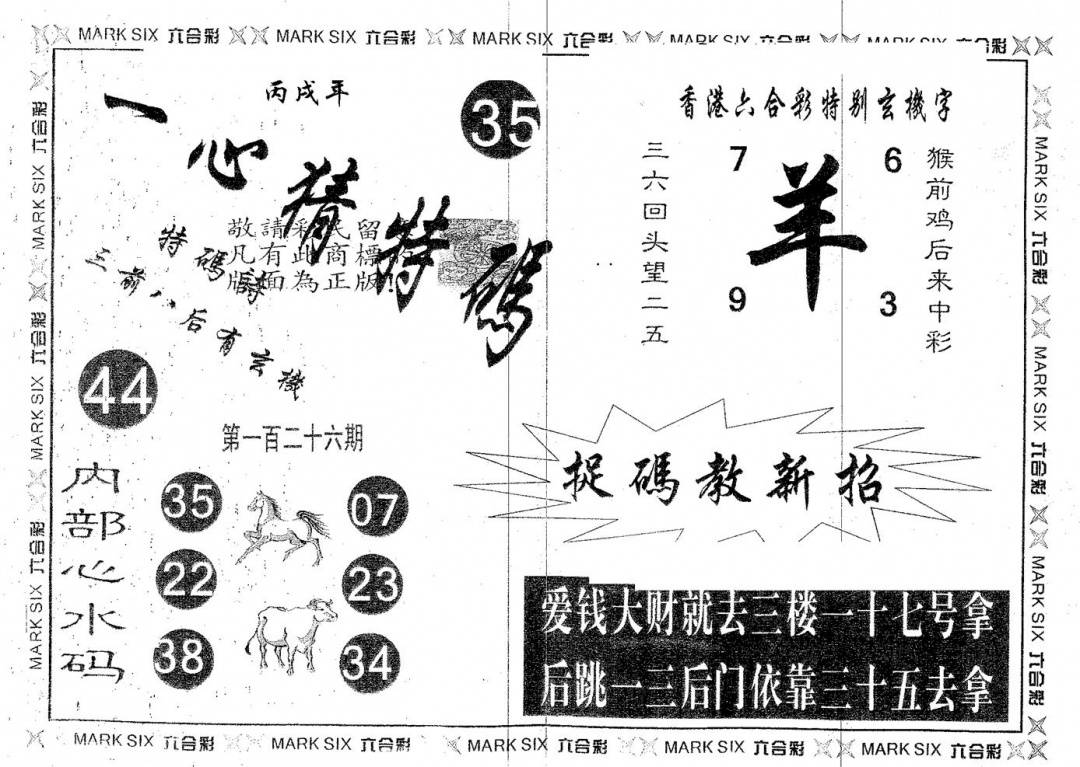 MARK SIX 六合彩 MARK SIX 六合彩 MARK SIX 六合彩 MARK SIX 六合彩 MARK SIX 六合彩
丙戌年
35
一心猜特碼
敬請彩民留
凡有此商標
版面為正版!
特碼詩
三前八后有玄機
44
第一百二十六期
内部心水码
35
07
22
23
38
34
香港六合彩特别玄機字
三六回头望二五
7
6
羊
9
3
猴前鸡后来中彩
捉碼教新招
爱钱大财就去三楼一十七号拿
后跳一三后门依靠三十五去拿
MARK SIX 六合彩 MARK SIX 六合彩 MARK SIX 六合彩
MARK SIX 六合彩 MARK SIX 六合彩 MARK SIX 六合彩
MARK SIX 六合彩 MARK SIX 六合彩 MARK SIX 六合彩 MARK SIX 六合彩 MARK SIX 六合彩